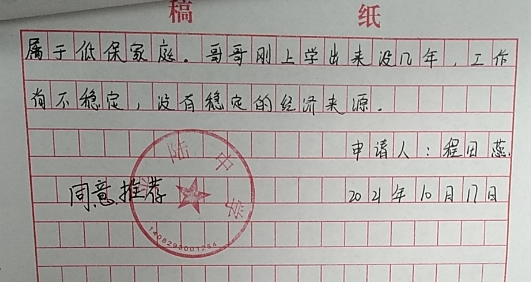 稿 纸
属于低保家庭。哥哥刚上学出来没几年，工作
尚不稳定，没有稳定的经济来源。
申请人：程日蕊
同意推荐
2021年10月17日
陆中学
1408293001254